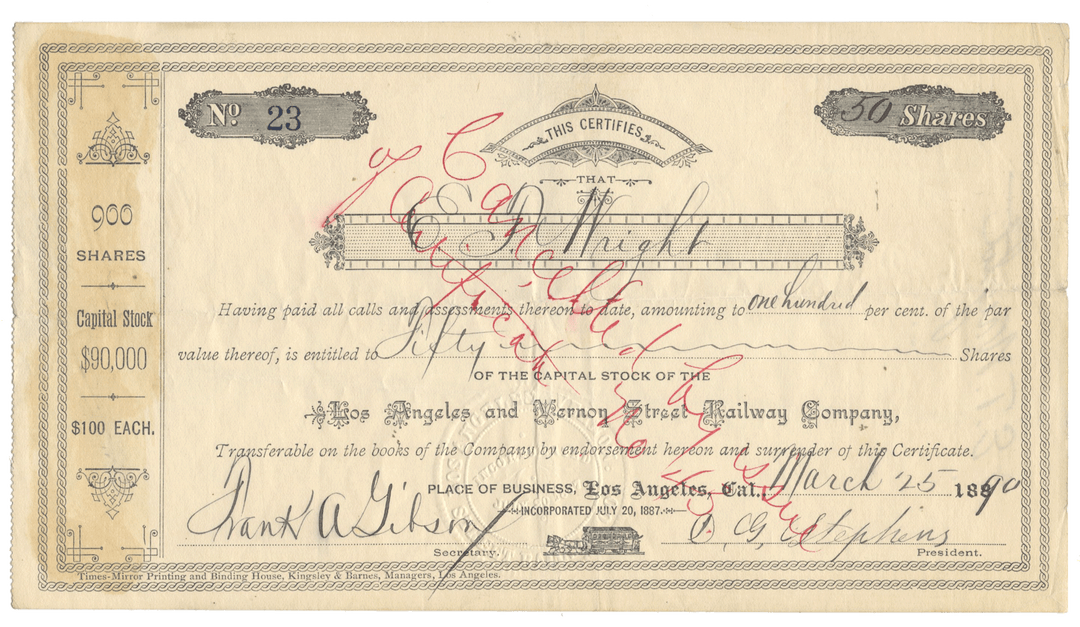 No. 23
THIS CERTIFIES
50 Shares
THAT
E. P. Wright
900
SHARES
Capital Stock
$90,000
$100 EACH.
Having paid all calls and assessments thereon to date, amounting to one hundred per cent. of the par
value thereof, is entitled to Fifty Shares
OF THE CAPITAL STOCK OF THE
Los Angeles and Vernon Street Railway Company,
Transferable on the books of the Company by endorsement hereon and surrender of this Certificate.
PLACE OF BUSINESS, Los Angeles, Cal., March 25 1890
INCORPORATED JULY 20, 1887.
Frank A Gibson
Secretary.
D. G. Stephens
President.
Times-Mirror Printing and Binding House, Kingsley & Barnes, Managers, Los Angeles.
Cancelled by issue
of Certificate No 45